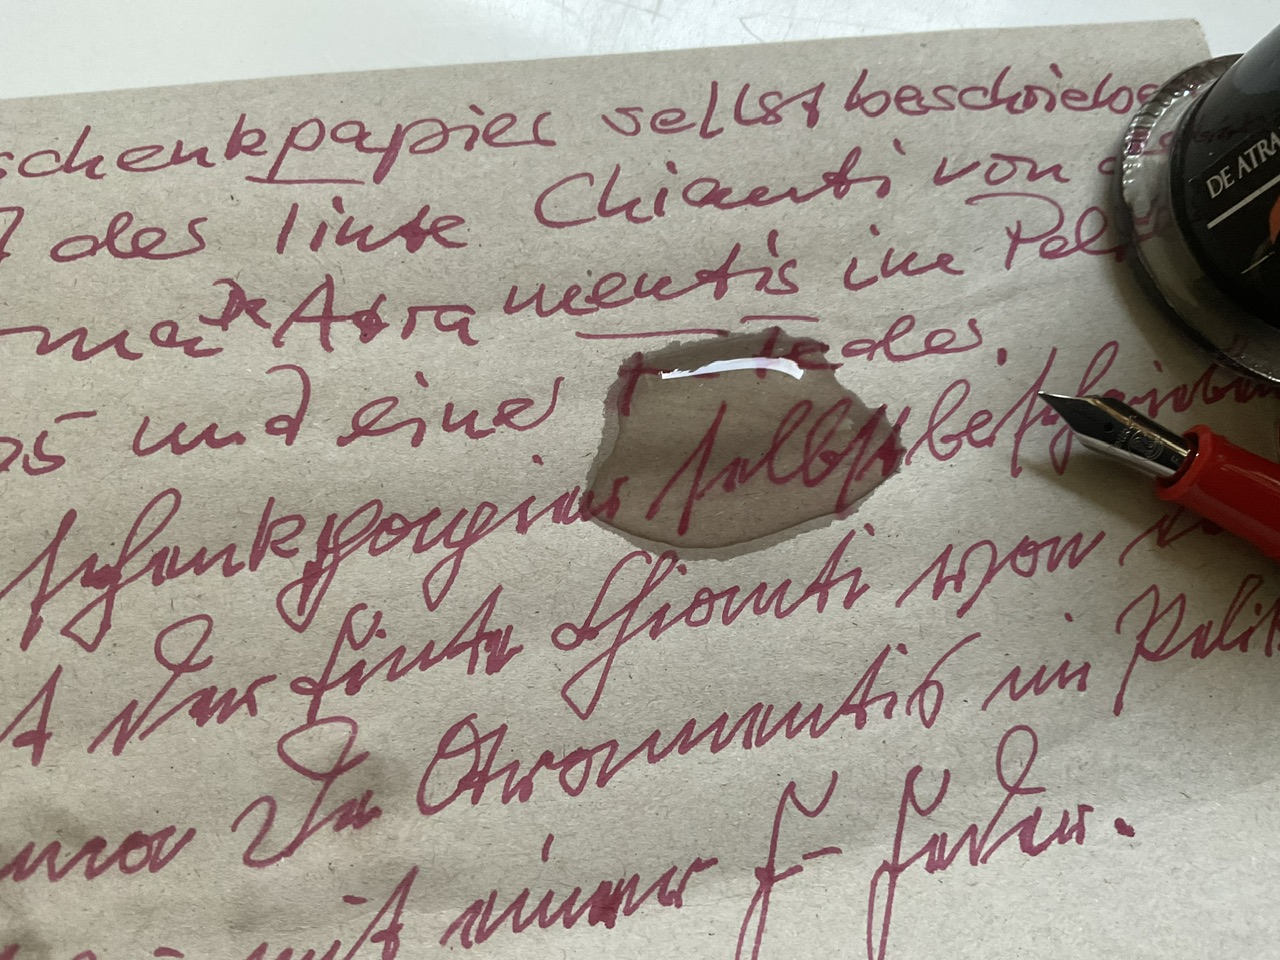 schenkpapier selbst beschriebe
der Tinte Chianti von
ma De Atramentis im Pel
05 und einer F-Feder.
schenkpapier selbst beschrieben
t der Tinte Chianti von
irma De Atramentis im Pelik
mit einer F-Feder.
DE ATRA